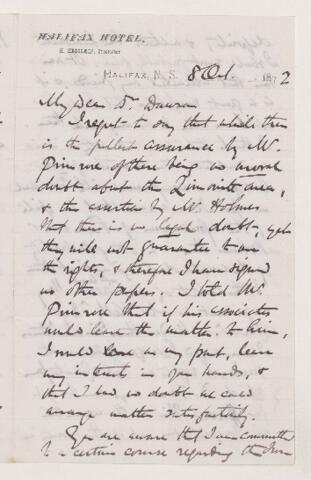 HALIFAX HOTEL.
HALIFAX, N. S. 8 Oct. 1872
My Dear Dr Dawson
I regret to say that while there
is the fullest assurance by Mr
Primrose of there being no moral
doubt about the Limonite area,
& the assertion by Mr Holmes
that there is no legal doubt, yet
they will not guarantee to me
the rights, & therefore I have signed
no other papers. I told Mr
Primrose that if his associates
would leave the matter to him,
I would on my part, leave
my interest in your hands, &
that I had no doubt we could
arrange matters satisfactorily.
You are aware that I am committed
to a certain course regarding the Iron